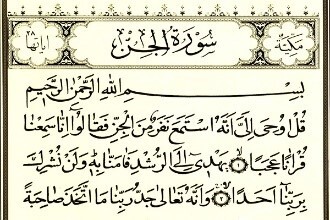 مكية سورة الجن آياتها ٢٨
بسم الله الرحمن الرحيم
قُلْ أُوحِيَ إِلَيَّ أَنَّهُ اسْتَمَعَ نَفَرٌ مِنَ الْجِنِّ فَقَالُوا إِنَّا سَمِعْنَا
قُرْآنًا عَجَبًا ۝ يَهْدِي إِلَى الرُّشْدِ فَآمَنَّا بِهِ وَلَنْ نُشْرِكَ
بِرَبِّنَا أَحَدًا ۝ وَأَنَّهُ تَعَالَى جَدُّ رَبِّنَا مَا اتَّخَذَ صَاحِبَةً